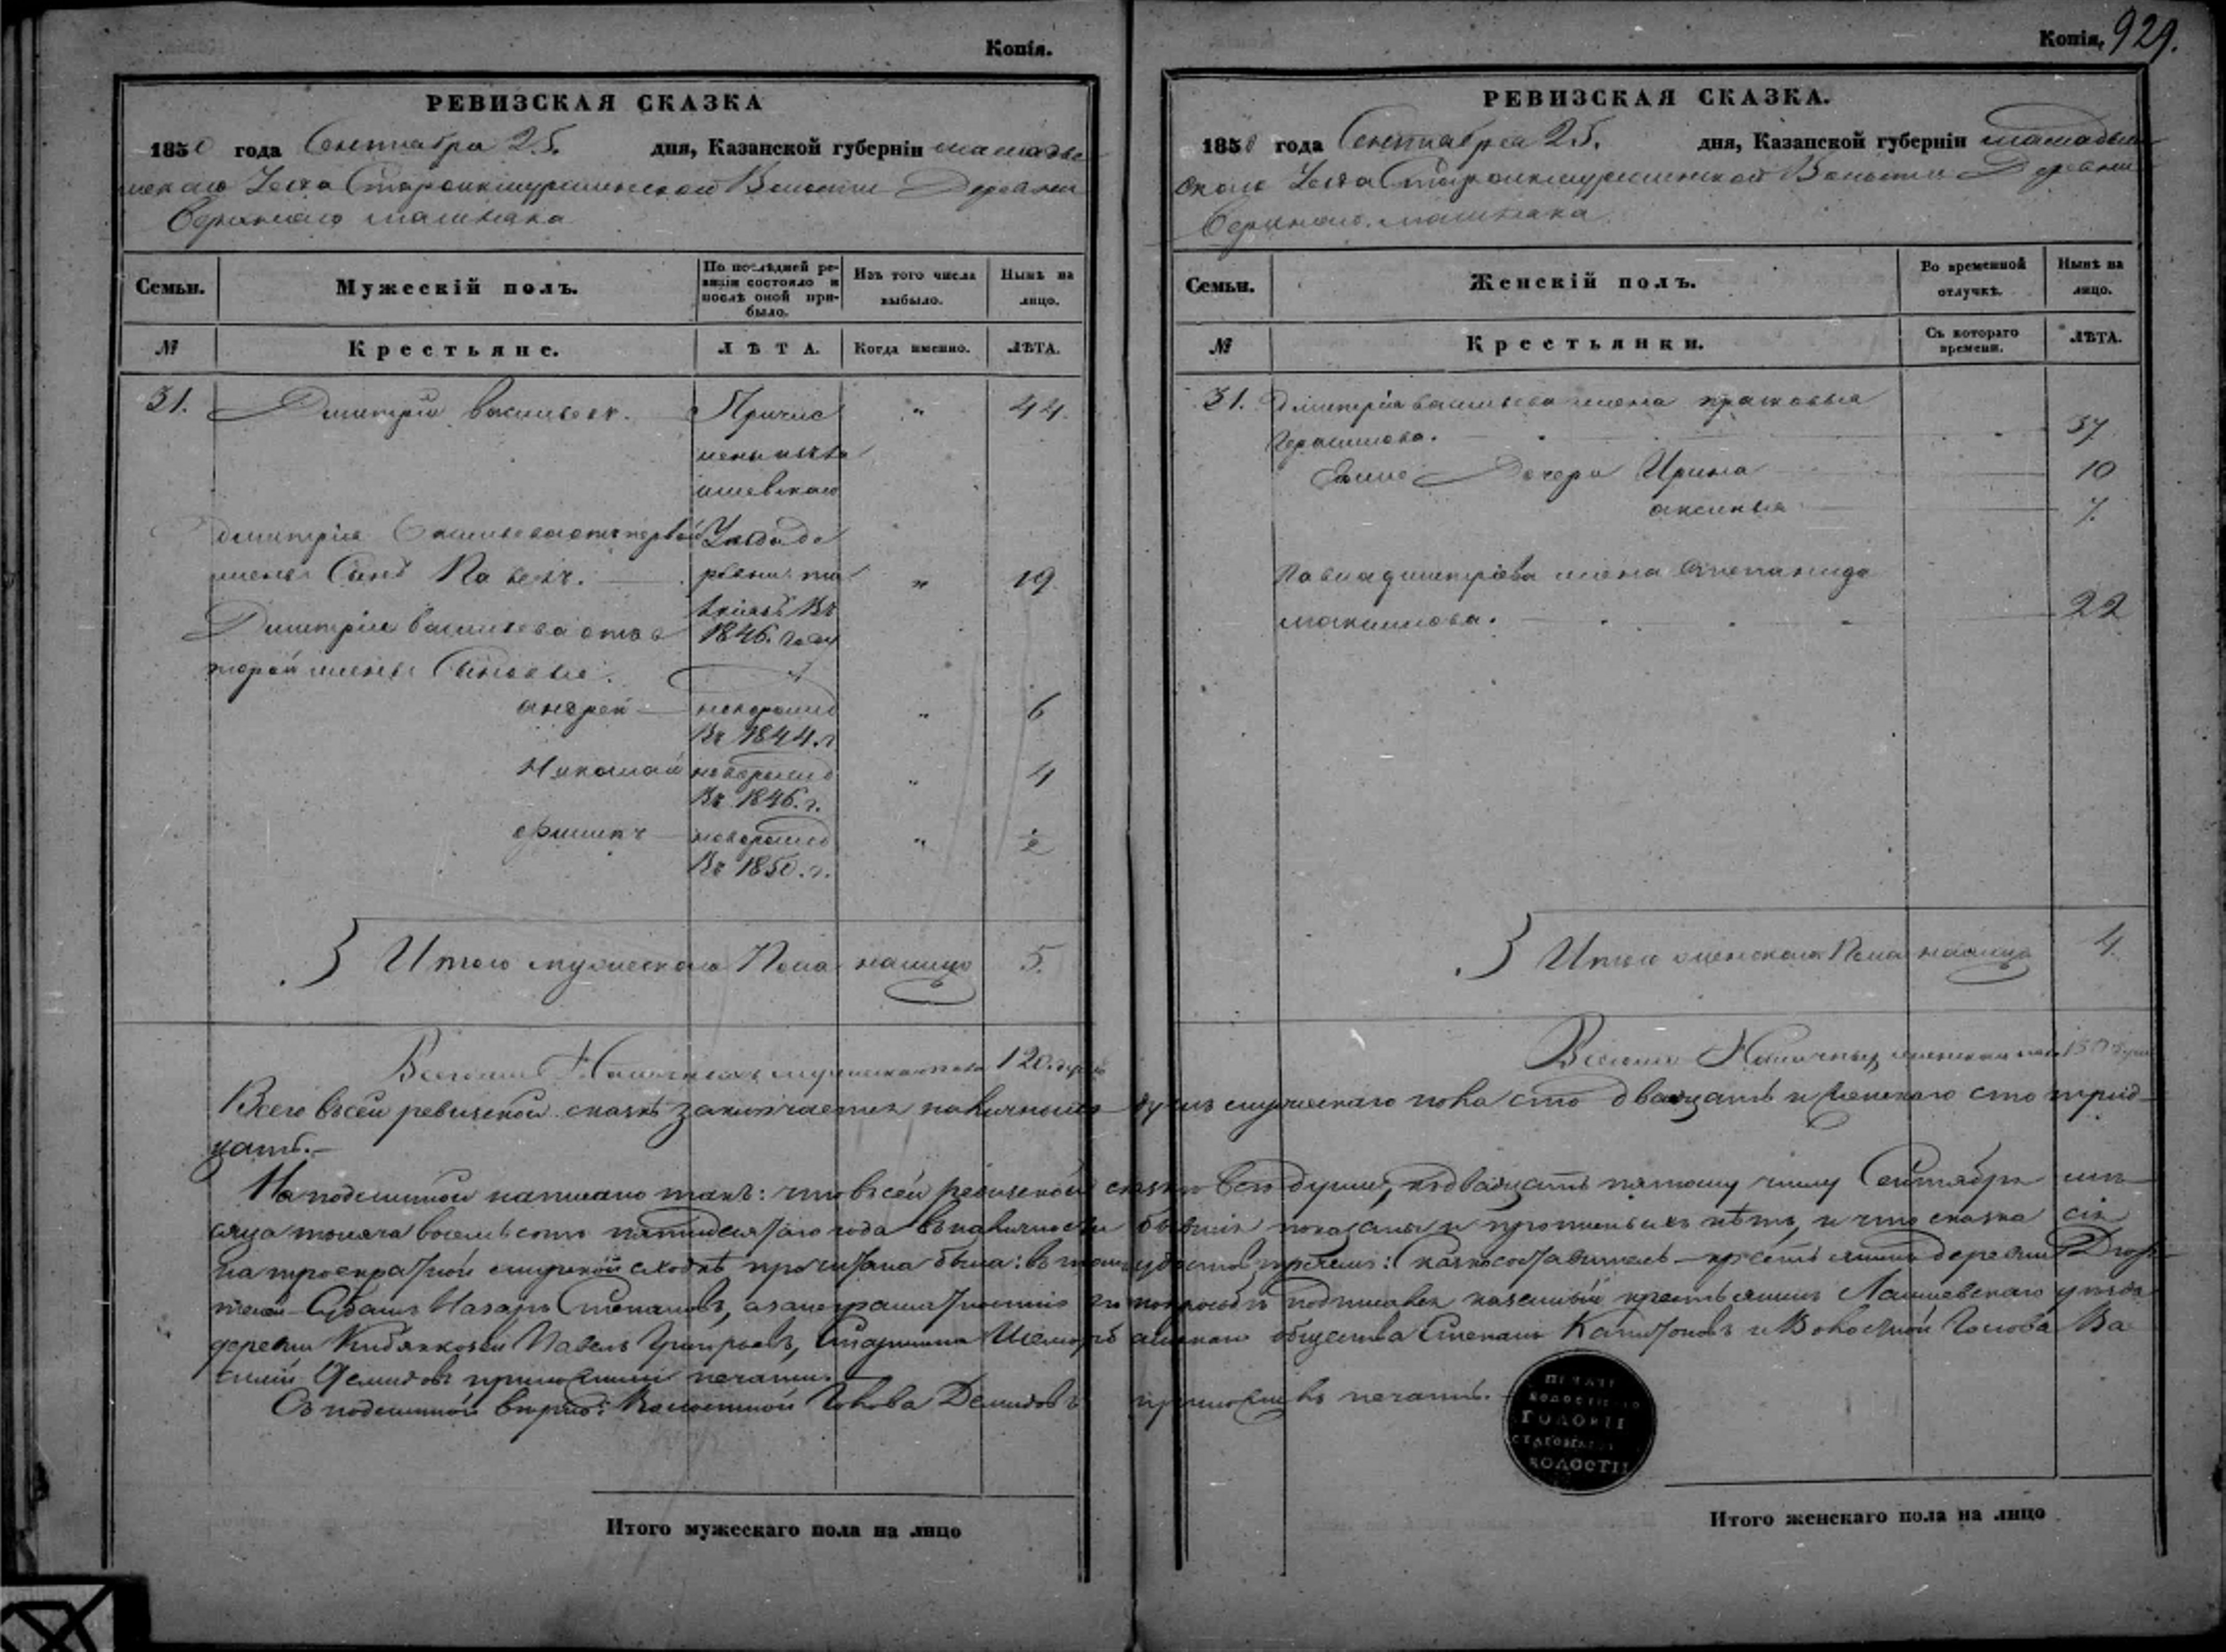 Копія.
РЕВИЗСКАЯ СКАЗКА
1850 года Сентября 25. дня, Казанской губерніи мамады
шскаго Уезда Волости Деревни
Верхняго машляка
Семьи. Мужескій полъ. По послѣдней ревизіи состояло и послѣ оной прибыло. Изъ того числа выбыло. Нынѣ на лицо.
№ Крестьяне. ЛѢТА. Когда именно. ЛѢТА.
31. Дмитрій васильевъ. Причис " 44.
ишевскаго
Дмитрія Васильева отъ первой Уезда де
жены Сынъ Павелъ. ревни " 19.
Въ
Дмитрія васильева отъ в 1846. году
торой жены Сыновья.
андрей новорожд " 6
Въ 1844. г
Николай новорожд " 4
Въ 1846. г.
Филипъ новорожд " ½
Въ 1850. г.
Итого мужескаго Пола налицо 5.
Наличныхъ мужеска пола 120. душъ
Копія, 929.
РЕВИЗСКАЯ СКАЗКА.
1850 года Сентября 25. дня, Казанской губерніи мамадыш
скаго Уезда Волости Деревни
Верхняго машляка
Семьи. Женскій полъ. Во временной отлучкѣ. Нынѣ на лицо.
№ Крестьянки. Съ котораго времени. ЛѢТА.
31. Дмитрія васильева жена прасковья
Герасимова. 37
Дочери Ирина 10
аксинья 7.
Павла дмитріева жена Степанида
максимова. 22
Итого женскаго Пола налицо 4.
Наличныхъ женска пола 130 душъ
Всего въ сей ревизской сказкѣ заключается наличныхъ душъ мужескаго пола сто двадцать и женскаго сто трид
цать.
На подлинной написано такъ: что въ сей ревизской сказкѣ всѣ души, къ двадцать пятому числу Сентября мѣ
сяца тысяча восемьсотъ пятидесятаго года въ наличности бывшія показаны и прописныхъ нѣтъ, и что сказка сія
на троекратной мирской сходкѣ прочитана была: въ томъ удостовѣряемъ: сказкосоставитель крестьянинъ деревни
Назаръ Степановъ, а за неграмотностію его по просьбѣ подписался казенный крестьянинъ Лаишевскаго уѣзда
деревни Павелъ Григорьевъ, Старшина общества Степанъ и Волостной Голова Ва
силій Демидовъ приложили печати.
Съ подлинной вѣрно: Волостной Голова Демидовъ приложилъ печать.
ПЕЧАТЬ
ВОЛОСТНАГО
ГОЛОВЫ
ВОЛОСТИ
Итого мужескаго пола на лицо
Итого женскаго пола на лицо